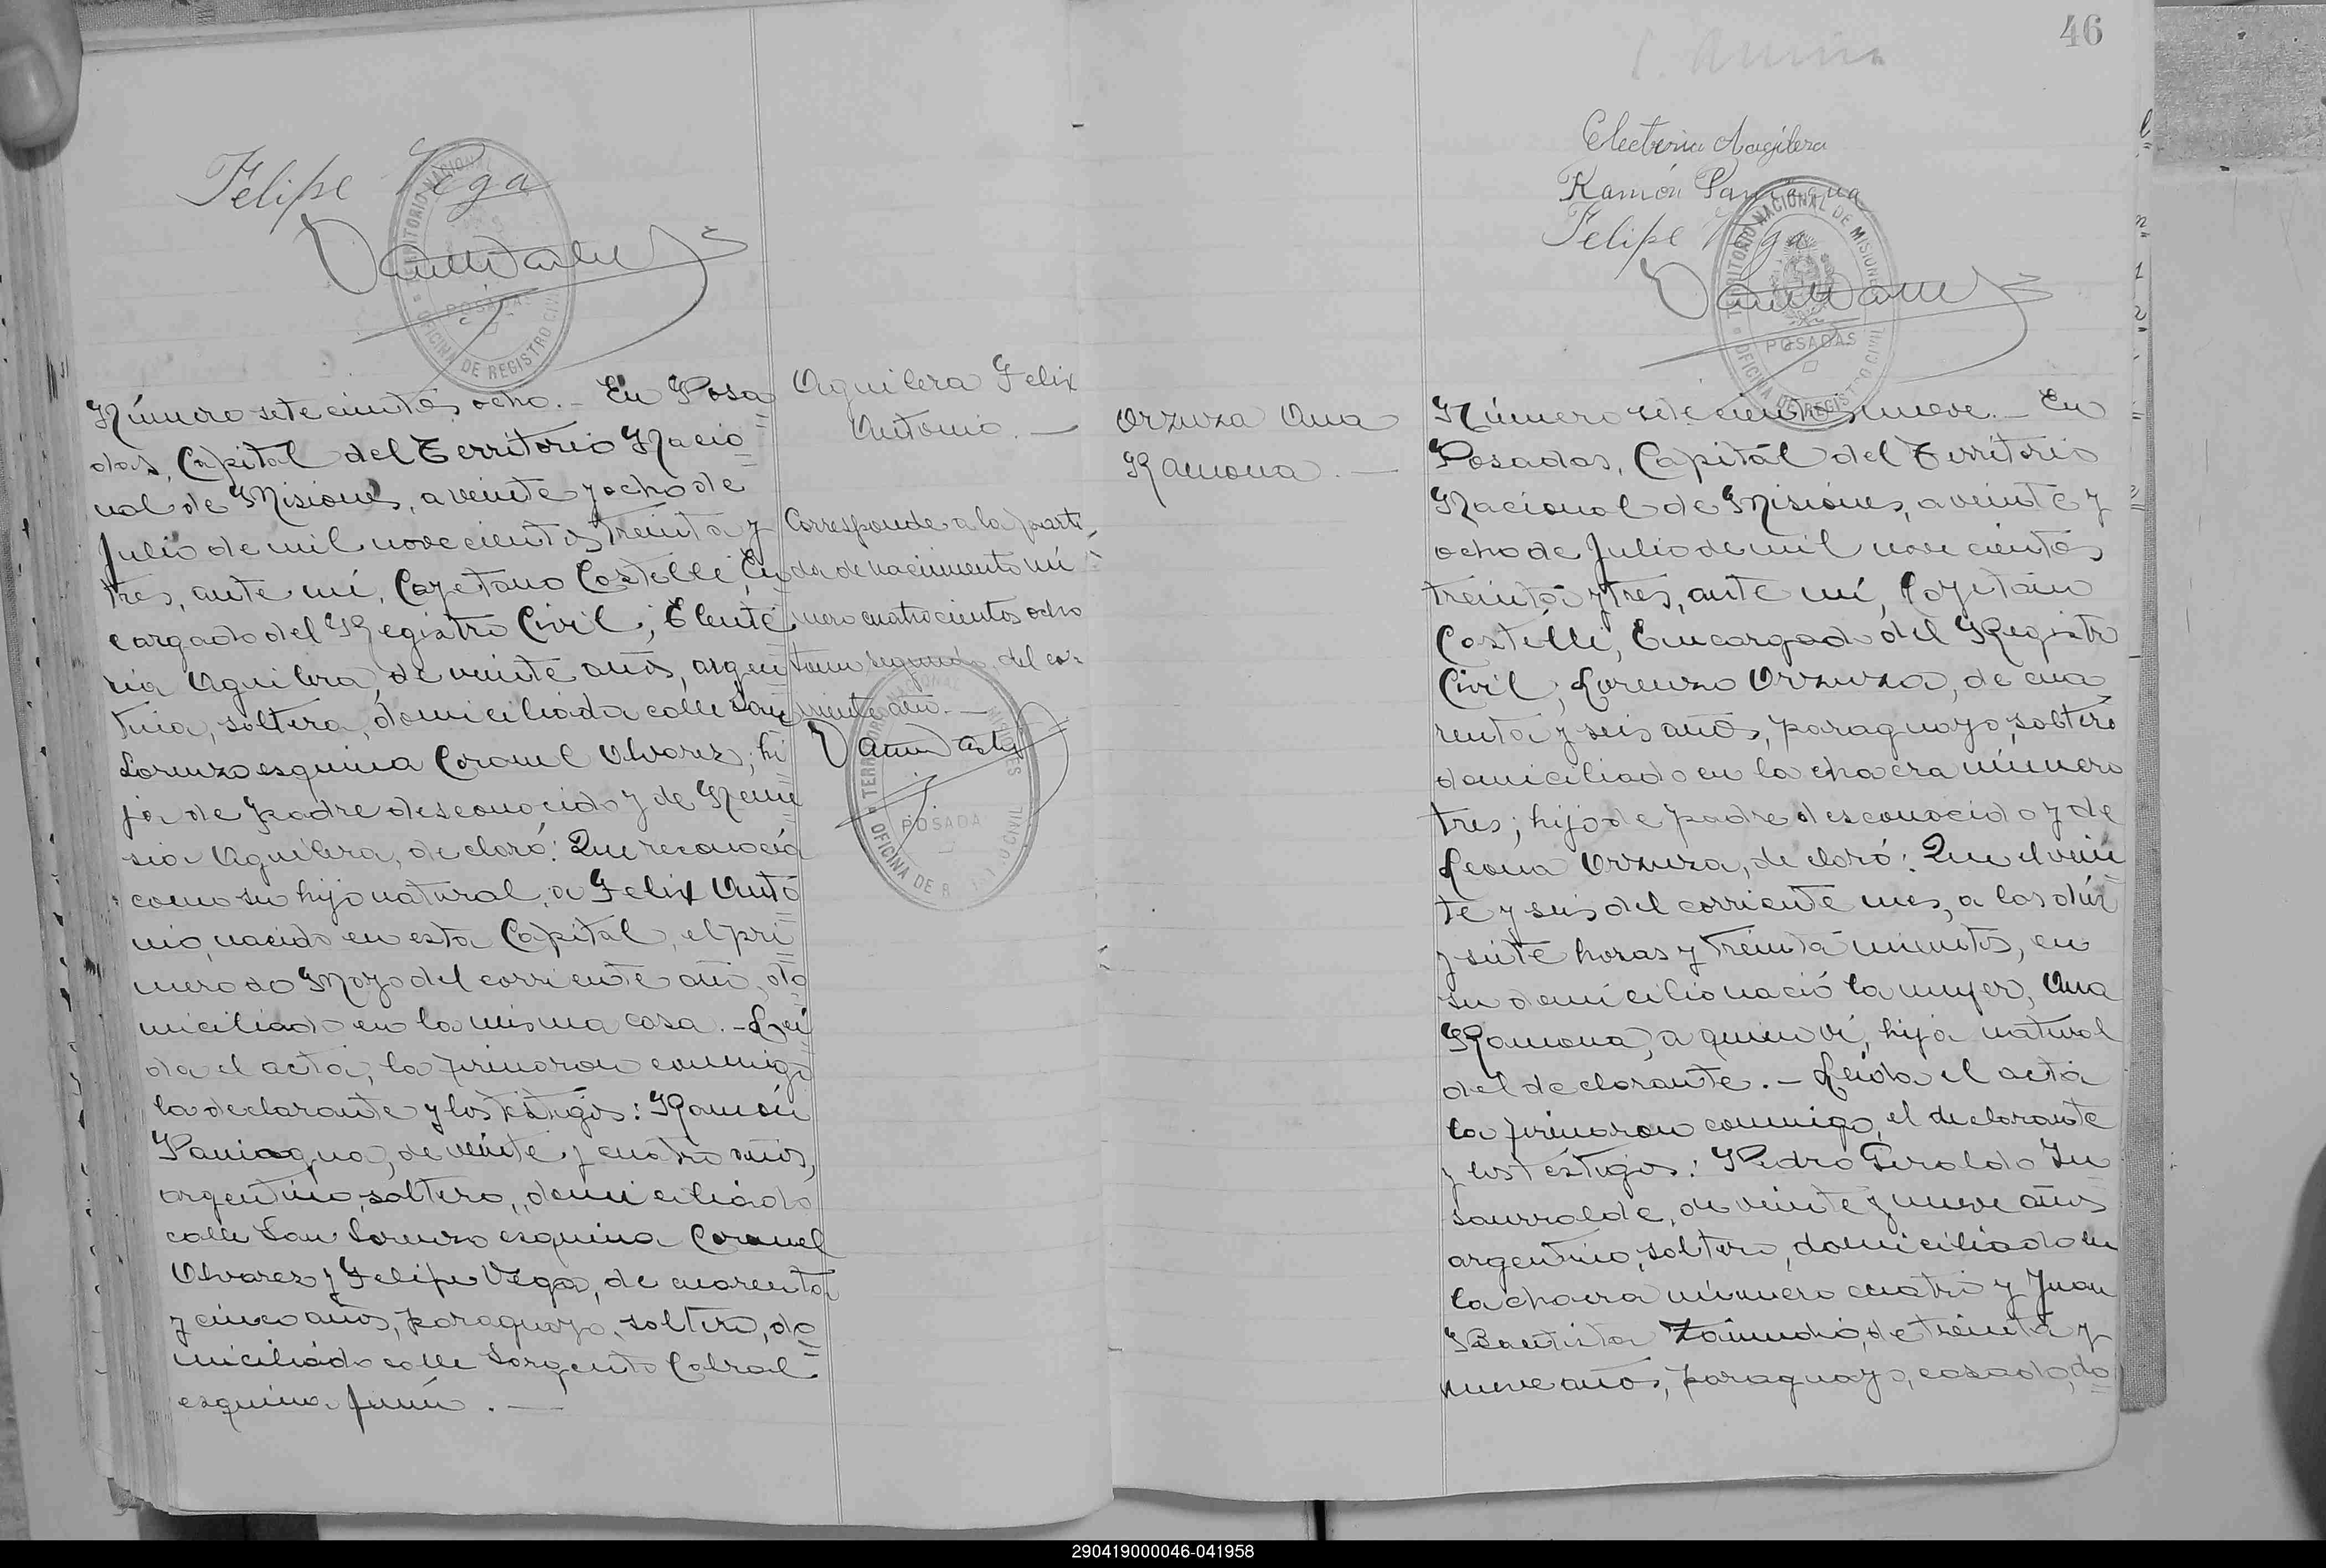 Felipe Vega
TERRITORIO NACIONAL
POSADAS
OFICINA DE REGISTRO CIVIL
Número setecientos ocho. — En Posa
das, Capital del Territorio Nacio
nal de Misiones, a veinte y ocho de
Julio de mil novecientos treinta y
tres, ante mí, Cayetano Castelli, En
cargado del Registro Civil; Eleute
ria Aguilera, de veinte años, argen
tina, soltera, domiciliada calle San
Lorenzo esquina Coronel Alvarez; hi
ja de padre desconocido y de Reme
sia Aguilera, declaró: Que reconocía
como su hijo natural, a Felix Anto
nio, nacido en esta Capital, el pri
mero de Mayo del corriente año, do
miciliado en la misma casa. — Leí
da el acta, la firmaron conmigo
la declarante y los testigos: Ramón
Paniagua, de veinte y cuatro años,
argentino, soltero, domiciliado
calle San Lorenzo esquina Coronel
Alvarez y Felipe Vega, de cuarenta
y cinco años, paraguayo, soltero, do
miciliado calle Sargento Cabral
esquina Junín. —
Aguilera Felix
Antonio. —
Corresponde a la parti
da de nacimiento nú
mero cuatrocientos ocho
tomo segundo del co
rriente año. —
TERRITORIO NACIONAL MISIONES
POSADA
OFICINA DE R CIVIL
46
Electeria Aagilera
Ramón Paniagua
Felipe Vega
TERRITORIO NACIONAL DE MISIONES
POSADAS
OFICINA DE REGISTRO CIVIL
Orzuza Ana
Ramona. —
Número setecientos nueve. — En
Posadas, Capital del Territorio
Nacional de Misiones, a veinte y
ocho de Julio de mil novecientos
treinta y tres, ante mí, Cayetano
Castelli, Encargado del Registro
Civil; Lorenzo Orzuza, de cua
renta y seis años, paraguayo, soltero
domiciliado en la chacra número
tres; hijo de padre desconocido y de
Leona Orzuza, declaró: Que el vein
te y seis del corriente mes, a las diez
y siete horas y treinta minutos, en
su domicilio nació la mujer, Ana
Ramona, a quien ví, hija natural
del declarante. — Leída el acta
la firmaron conmigo, el declarante
y los testigos: Pedro Giraldo In
saurralde, de veinte y nueve años
argentino, soltero, domiciliado en
la chacra número cuatro y Juan
Bautista Zamudio, de treinta y
nueve años, paraguayo, casado, do
290419000046-041958